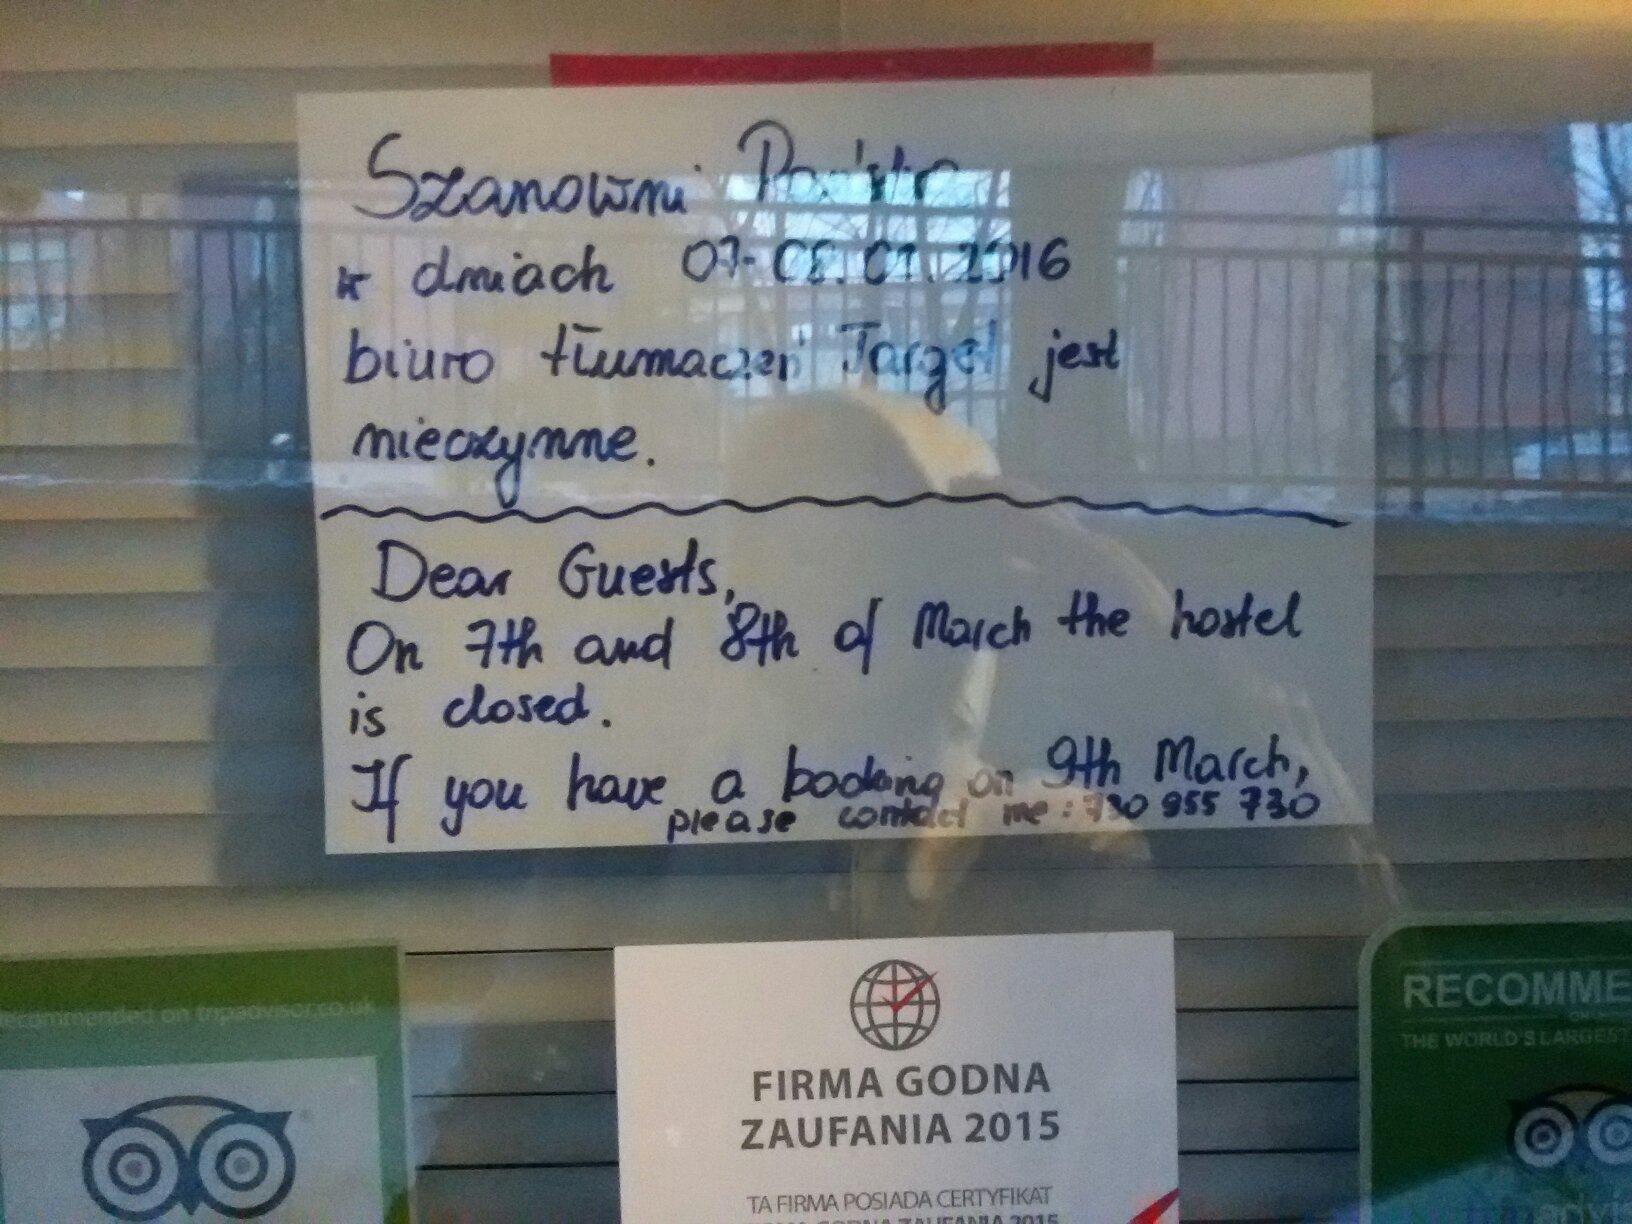 Szanowni Państwo
w dniach 07-08.01.2016
biuro tłumaczeń Target jest
nieczynne.
Dear Guests,
On 7th and 8th of March the hostel
is closed.
If you have a booking on 9th March,
please contact me: 730 955 730
recommended on tripadvisor.co.uk
FIRMA GODNA
ZAUFANIA 2015
TA FIRMA POSIADA CERTYFIKAT
FIRMA GODNA ZAUFANIA 2015
RECOMME
ON
THE WORLD'S LARGEST